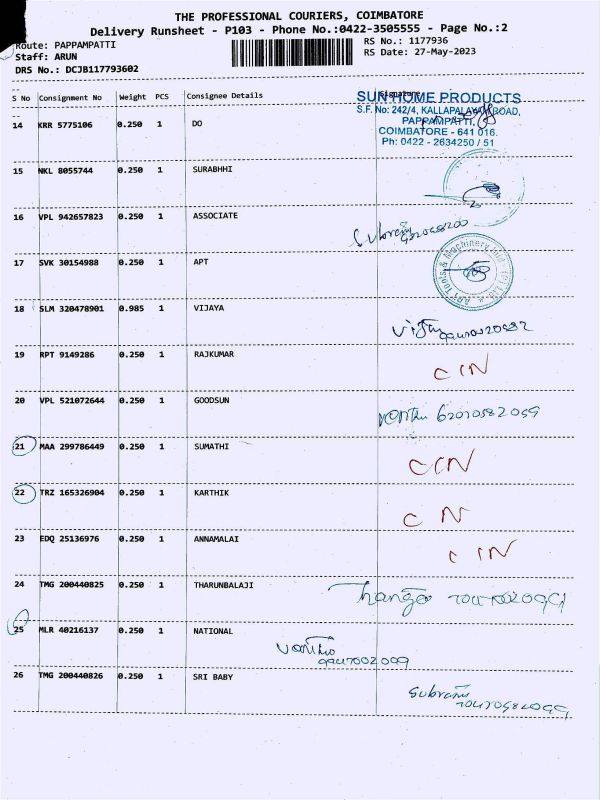 THE PROFESSIONAL COURIERS, COIMBATORE
Delivery Runsheet - P103 - Phone No.:0422-3505555 - Page No.:2
Route: PAPPAMPATTI
RS No.: 1177936
Staff: ARUN
RS Date: 27-May-2023
DRS No.: DCJB117793602
S No Consignment No Weight PCS Consignee Details Signature
SUN HOME PRODUCTS
S.F. No: 242/4, KALLAPALAYAM ROAD,
PAPPAMPATTI,
COIMBATORE - 641 016.
Ph: 0422 - 2634250 / 51
14 KRR 5775106 0.250 1 DO
15 NKL 8055744 0.250 1 SURABHHI
16 VPL 942657823 0.250 1 ASSOCIATE
17 SVK 30154988 0.250 1 APT
18 SLM 320478901 0.985 1 VIJAYA
19 RPT 9149286 0.250 1 RAJKUMAR
CIN
20 VPL 521072644 0.250 1 GOODSUN
21 MAA 299786449 0.250 1 SUMATHI
CIN
22 TRZ 165326904 0.250 1 KARTHIK
CIN
23 EDQ 25136976 0.250 1 ANNAMALAI
CIN
24 TMG 200440825 0.250 1 THARUNBALAJI
25 MLR 40216137 0.250 1 NATIONAL
26 TMG 200440826 0.250 1 SRI BABY